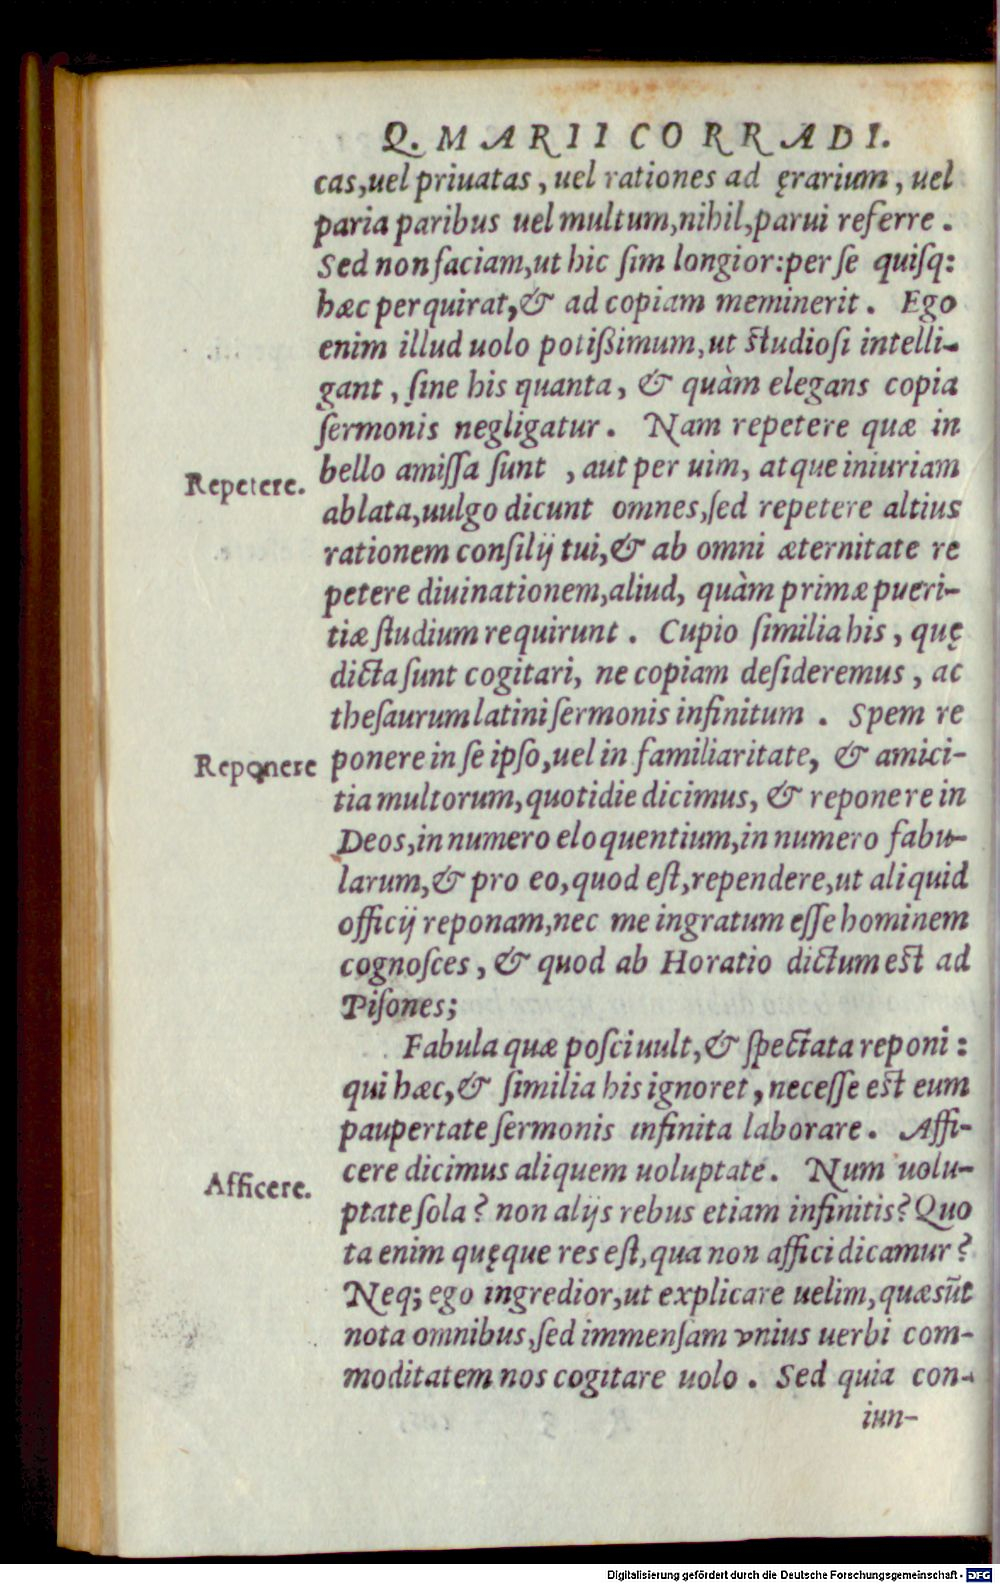 Q. MARII CORRADI.
cas, uel priuatas, uel rationes ad ęrarium, uel
paria paribus uel multum, nihil, parui referre.
Sed non faciam, ut hic ſim longior: per ſe quiſq:
hæc perquirat, & ad copiam meminerit. Ego
enim illud uolo potißimum, ut ſtudioſi intelli-
gant, ſine his quanta, & quàm elegans copia
ſermonis negligatur. Nam repetere quæ in
bello amiſſa ſunt, aut per uim, atque iniuriam
Repetere.
ablata, uulgo dicunt omnes, ſed repetere altius
rationem conſilij tui, & ab omni æternitate re
petere diuinationem, aliud, quàm primæ pueri-
tiæ ſtudium requirunt. Cupio ſimilia his, quę
dicta ſunt cogitari, ne copiam deſideremus, ac
theſaurum latini ſermonis infinitum. Spem re
Reponere
ponere in ſe ipſo, uel in familiaritate, & amici-
tia multorum, quotidie dicimus, & reponere in
Deos, in numero eloquentium, in numero fabu-
larum, & pro eo, quod eſt, rependere, ut aliquid
officij reponam, nec me ingratum eſſe hominem
cognoſces, & quod ab Horatio dictum eſt ad
Piſones;
Fabula quæ poſci uult, & ſpectata reponi:
qui hæc, & ſimilia his ignoret, neceſſe eſt eum
paupertate ſermonis infinita laborare. Affi-
Afficere.
cere dicimus aliquem uoluptate. Num uolu-
ptate ſola? non alijs rebus etiam infinitis? Quo
ta enim quęque res eſt, qua non affici dicamur?
Neq; ego ingredior, ut explicare uelim, quæ sũt
nota omnibus, ſed immenſam vnius uerbi com-
moditatem nos cogitare uolo. Sed quia con-
iun-
Digitalisierung gefördert durch die Deutsche Forschungsgemeinschaft - DFG